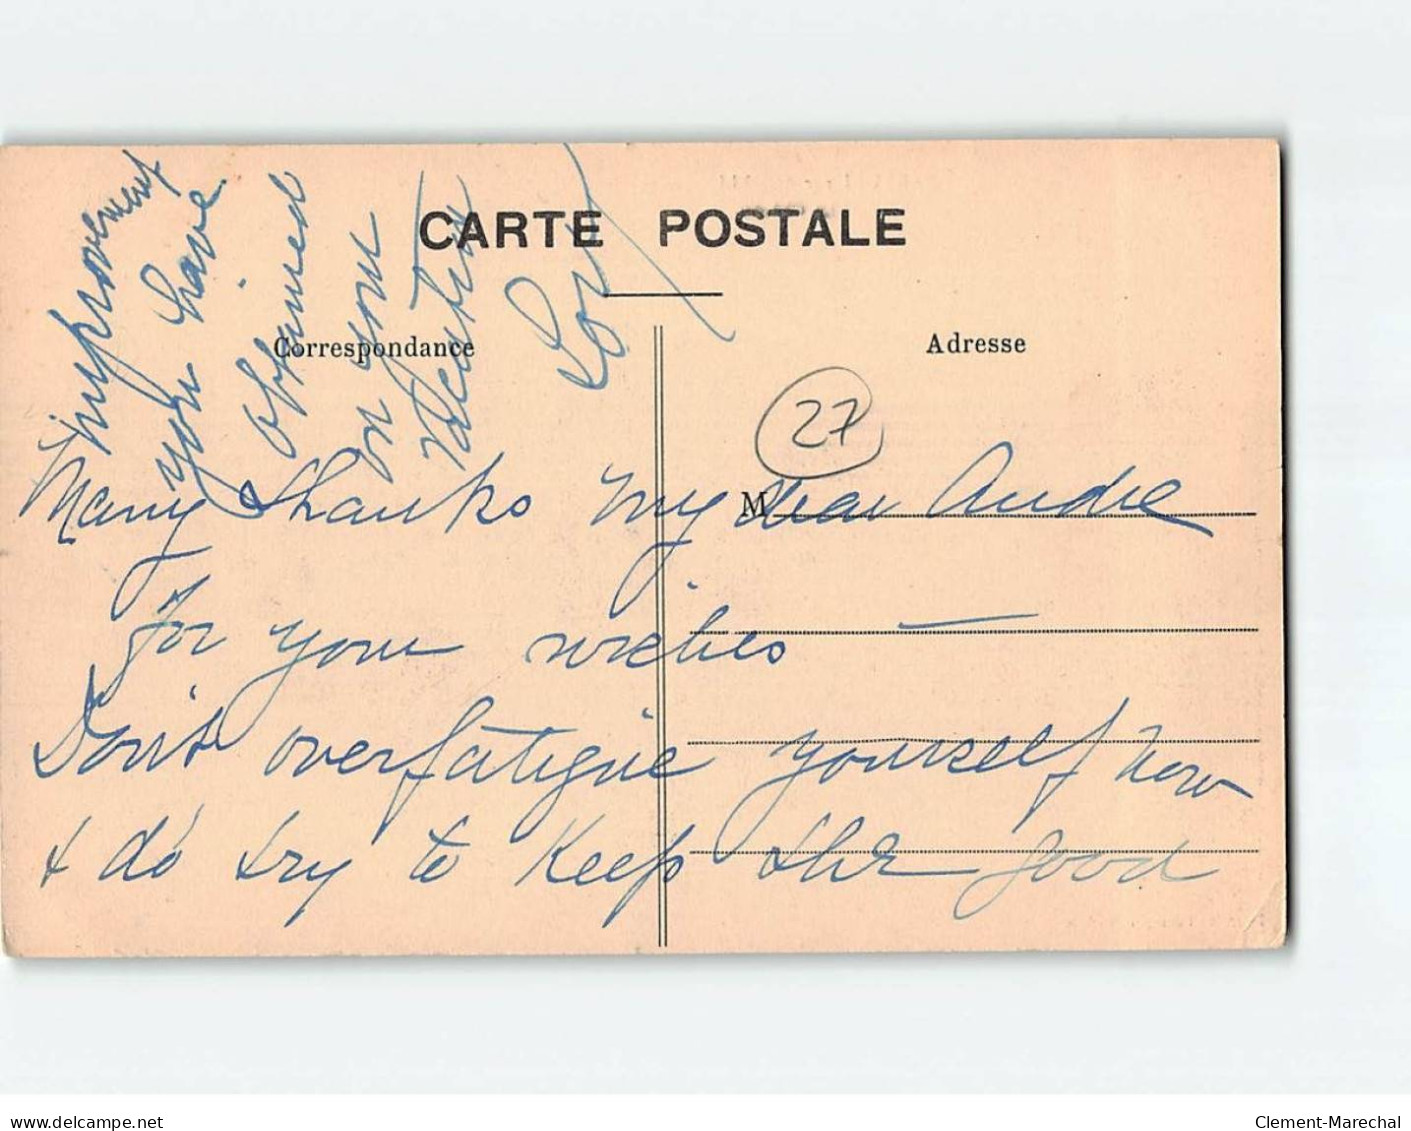 CARTE POSTALE
Correspondance
Adresse
27
M
Many thanks my dear Andre
for your wishes —
Don't overfatigue yourself now
& do try to keep the good
improvement
you have
obtained
on your
vacation
delcampe.net
Clement-Marechal